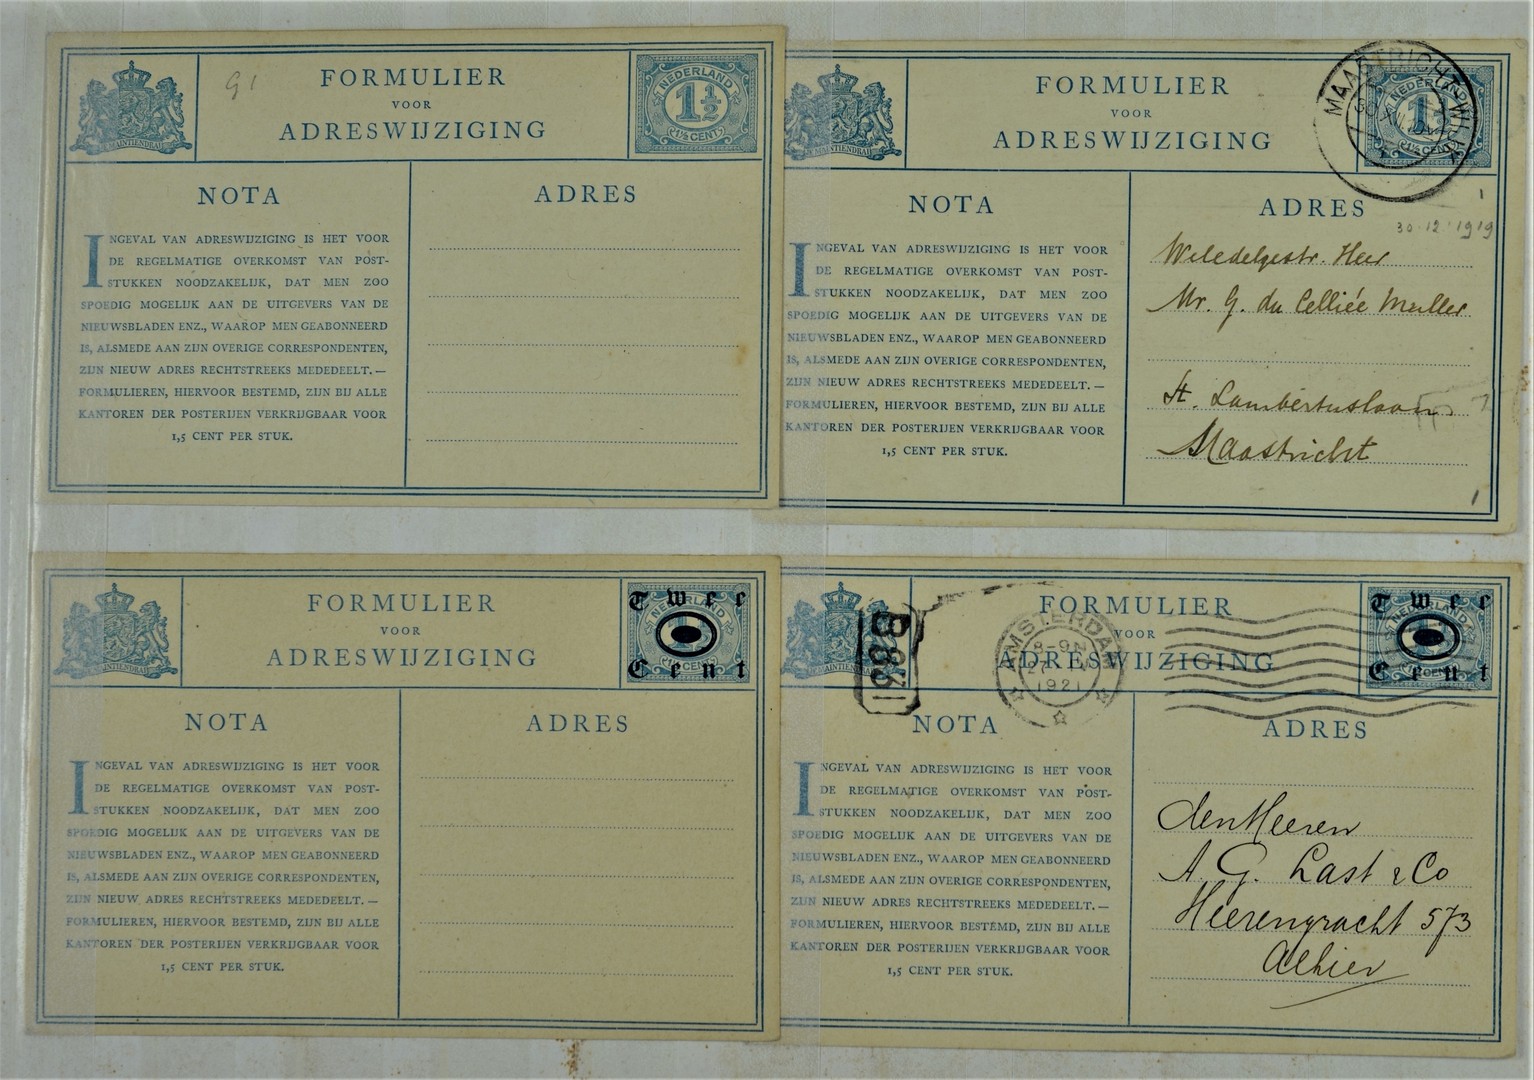 G1
FORMULIER
VOOR
ADRESWIJZIGING
NEDERLAND
1½
(1½ CENT)
MAINTIENDRAI
NOTA
ADRES
INGEVAL VAN ADRESWIJZIGING IS HET VOOR
DE REGELMATIGE OVERKOMST VAN POST-
STUKKEN NOODZAKELIJK, DAT MEN ZOO
SPOEDIG MOGELIJK AAN DE UITGEVERS VAN DE
NIEUWSBLADEN ENZ., WAAROP MEN GEABONNEERD
IS, ALSMEDE AAN ZIJN OVERIGE CORRESPONDENTEN,
ZIJN NIEUW ADRES RECHTSTREEKS MEDEDEELT. —
FORMULIEREN, HIERVOOR BESTEMD, ZIJN BIJ ALLE
KANTOREN DER POSTERIJEN VERKRIJGBAAR VOOR
1,5 CENT PER STUK.
FORMULIER
VOOR
ADRESWIJZIGING
MAASTRICHT
NEDERLAND
MAINTIENDRAI
NOTA
ADRES
30·12·1919
INGEVAL VAN ADRESWIJZIGING IS HET VOOR
DE REGELMATIGE OVERKOMST VAN POST-
STUKKEN NOODZAKELIJK, DAT MEN ZOO
SPOEDIG MOGELIJK AAN DE UITGEVERS VAN DE
NIEUWSBLADEN ENZ., WAAROP MEN GEABONNEERD
IS, ALSMEDE AAN ZIJN OVERIGE CORRESPONDENTEN,
ZIJN NIEUW ADRES RECHTSTREEKS MEDEDEELT. —
FORMULIEREN, HIERVOOR BESTEMD, ZIJN BIJ ALLE
KANTOREN DER POSTERIJEN VERKRIJGBAAR VOOR
1,5 CENT PER STUK.
Weledelgestr. Heer
Mr. G. du Celliée Muller
St. Lambertuslaan
Maastricht
FORMULIER
VOOR
ADRESWIJZIGING
Twee
NEDERLAND
Cent
NOTA
ADRES
INGEVAL VAN ADRESWIJZIGING IS HET VOOR
DE REGELMATIGE OVERKOMST VAN POST-
STUKKEN NOODZAKELIJK, DAT MEN ZOO
SPOEDIG MOGELIJK AAN DE UITGEVERS VAN DE
NIEUWSBLADEN ENZ., WAAROP MEN GEABONNEERD
IS, ALSMEDE AAN ZIJN OVERIGE CORRESPONDENTEN,
ZIJN NIEUW ADRES RECHTSTREEKS MEDEDEELT. —
FORMULIEREN, HIERVOOR BESTEMD, ZIJN BIJ ALLE
KANTOREN DER POSTERIJEN VERKRIJGBAAR VOOR
1,5 CENT PER STUK.
FORMULIER
VOOR
ADRESWIJZIGING
AMSTERDAM
8-9N
1921
Twee
NEDERLAND
Cent
NOTA
ADRES
INGEVAL VAN ADRESWIJZIGING IS HET VOOR
DE REGELMATIGE OVERKOMST VAN POST-
STUKKEN NOODZAKELIJK, DAT MEN ZOO
SPOEDIG MOGELIJK AAN DE UITGEVERS VAN DE
NIEUWSBLADEN ENZ., WAAROP MEN GEABONNEERD
IS, ALSMEDE AAN ZIJN OVERIGE CORRESPONDENTEN,
ZIJN NIEUW ADRES RECHTSTREEKS MEDEDEELT. —
FORMULIEREN, HIERVOOR BESTEMD, ZIJN BIJ ALLE
KANTOREN DER POSTERIJEN VERKRIJGBAAR VOOR
1,5 CENT PER STUK.
den Heeren
A. G. Last & Co
Heerengracht 573
Alhier